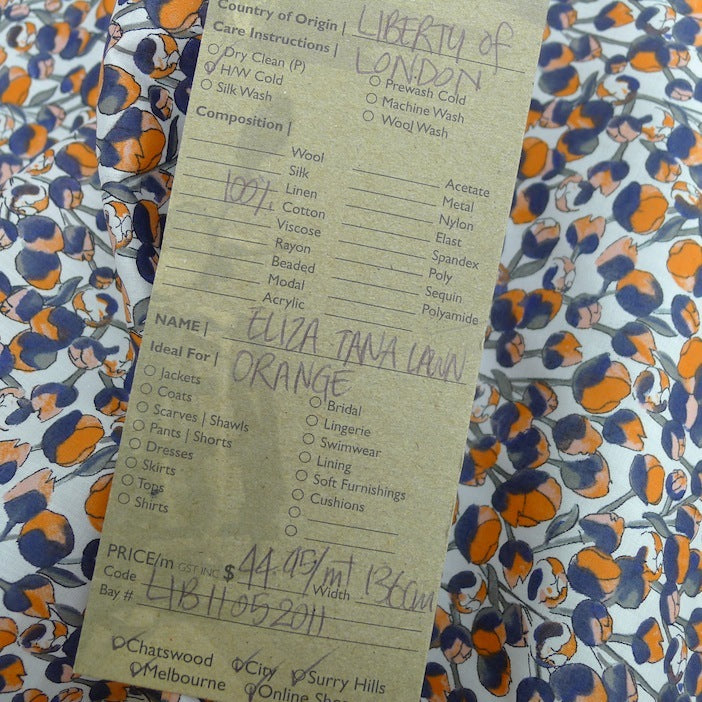 Country of Origin | LIBERTY of
Care Instructions | LONDON
Dry Clean (P)
H/W Cold
Silk Wash
Prewash Cold
Machine Wash
Wool Wash
Composition |
Wool
Silk
Linen
100% Cotton
Viscose
Rayon
Beaded
Modal
Acrylic
Acetate
Metal
Nylon
Elast
Spandex
Poly
Sequin
Polyamide
NAME | ELIZA TANA LAWN
Ideal For | ORANGE
Jackets
Coats
Scarves | Shawls
Pants | Shorts
Dresses
Skirts
Tops
Shirts
Bridal
Lingerie
Swimwear
Lining
Soft Furnishings
Cushions
PRICE/m GST INC $ 44.95/mt Width 136cm
Code LIB11052011
Bay #
Chatswood City Surry Hills
Melbourne Online